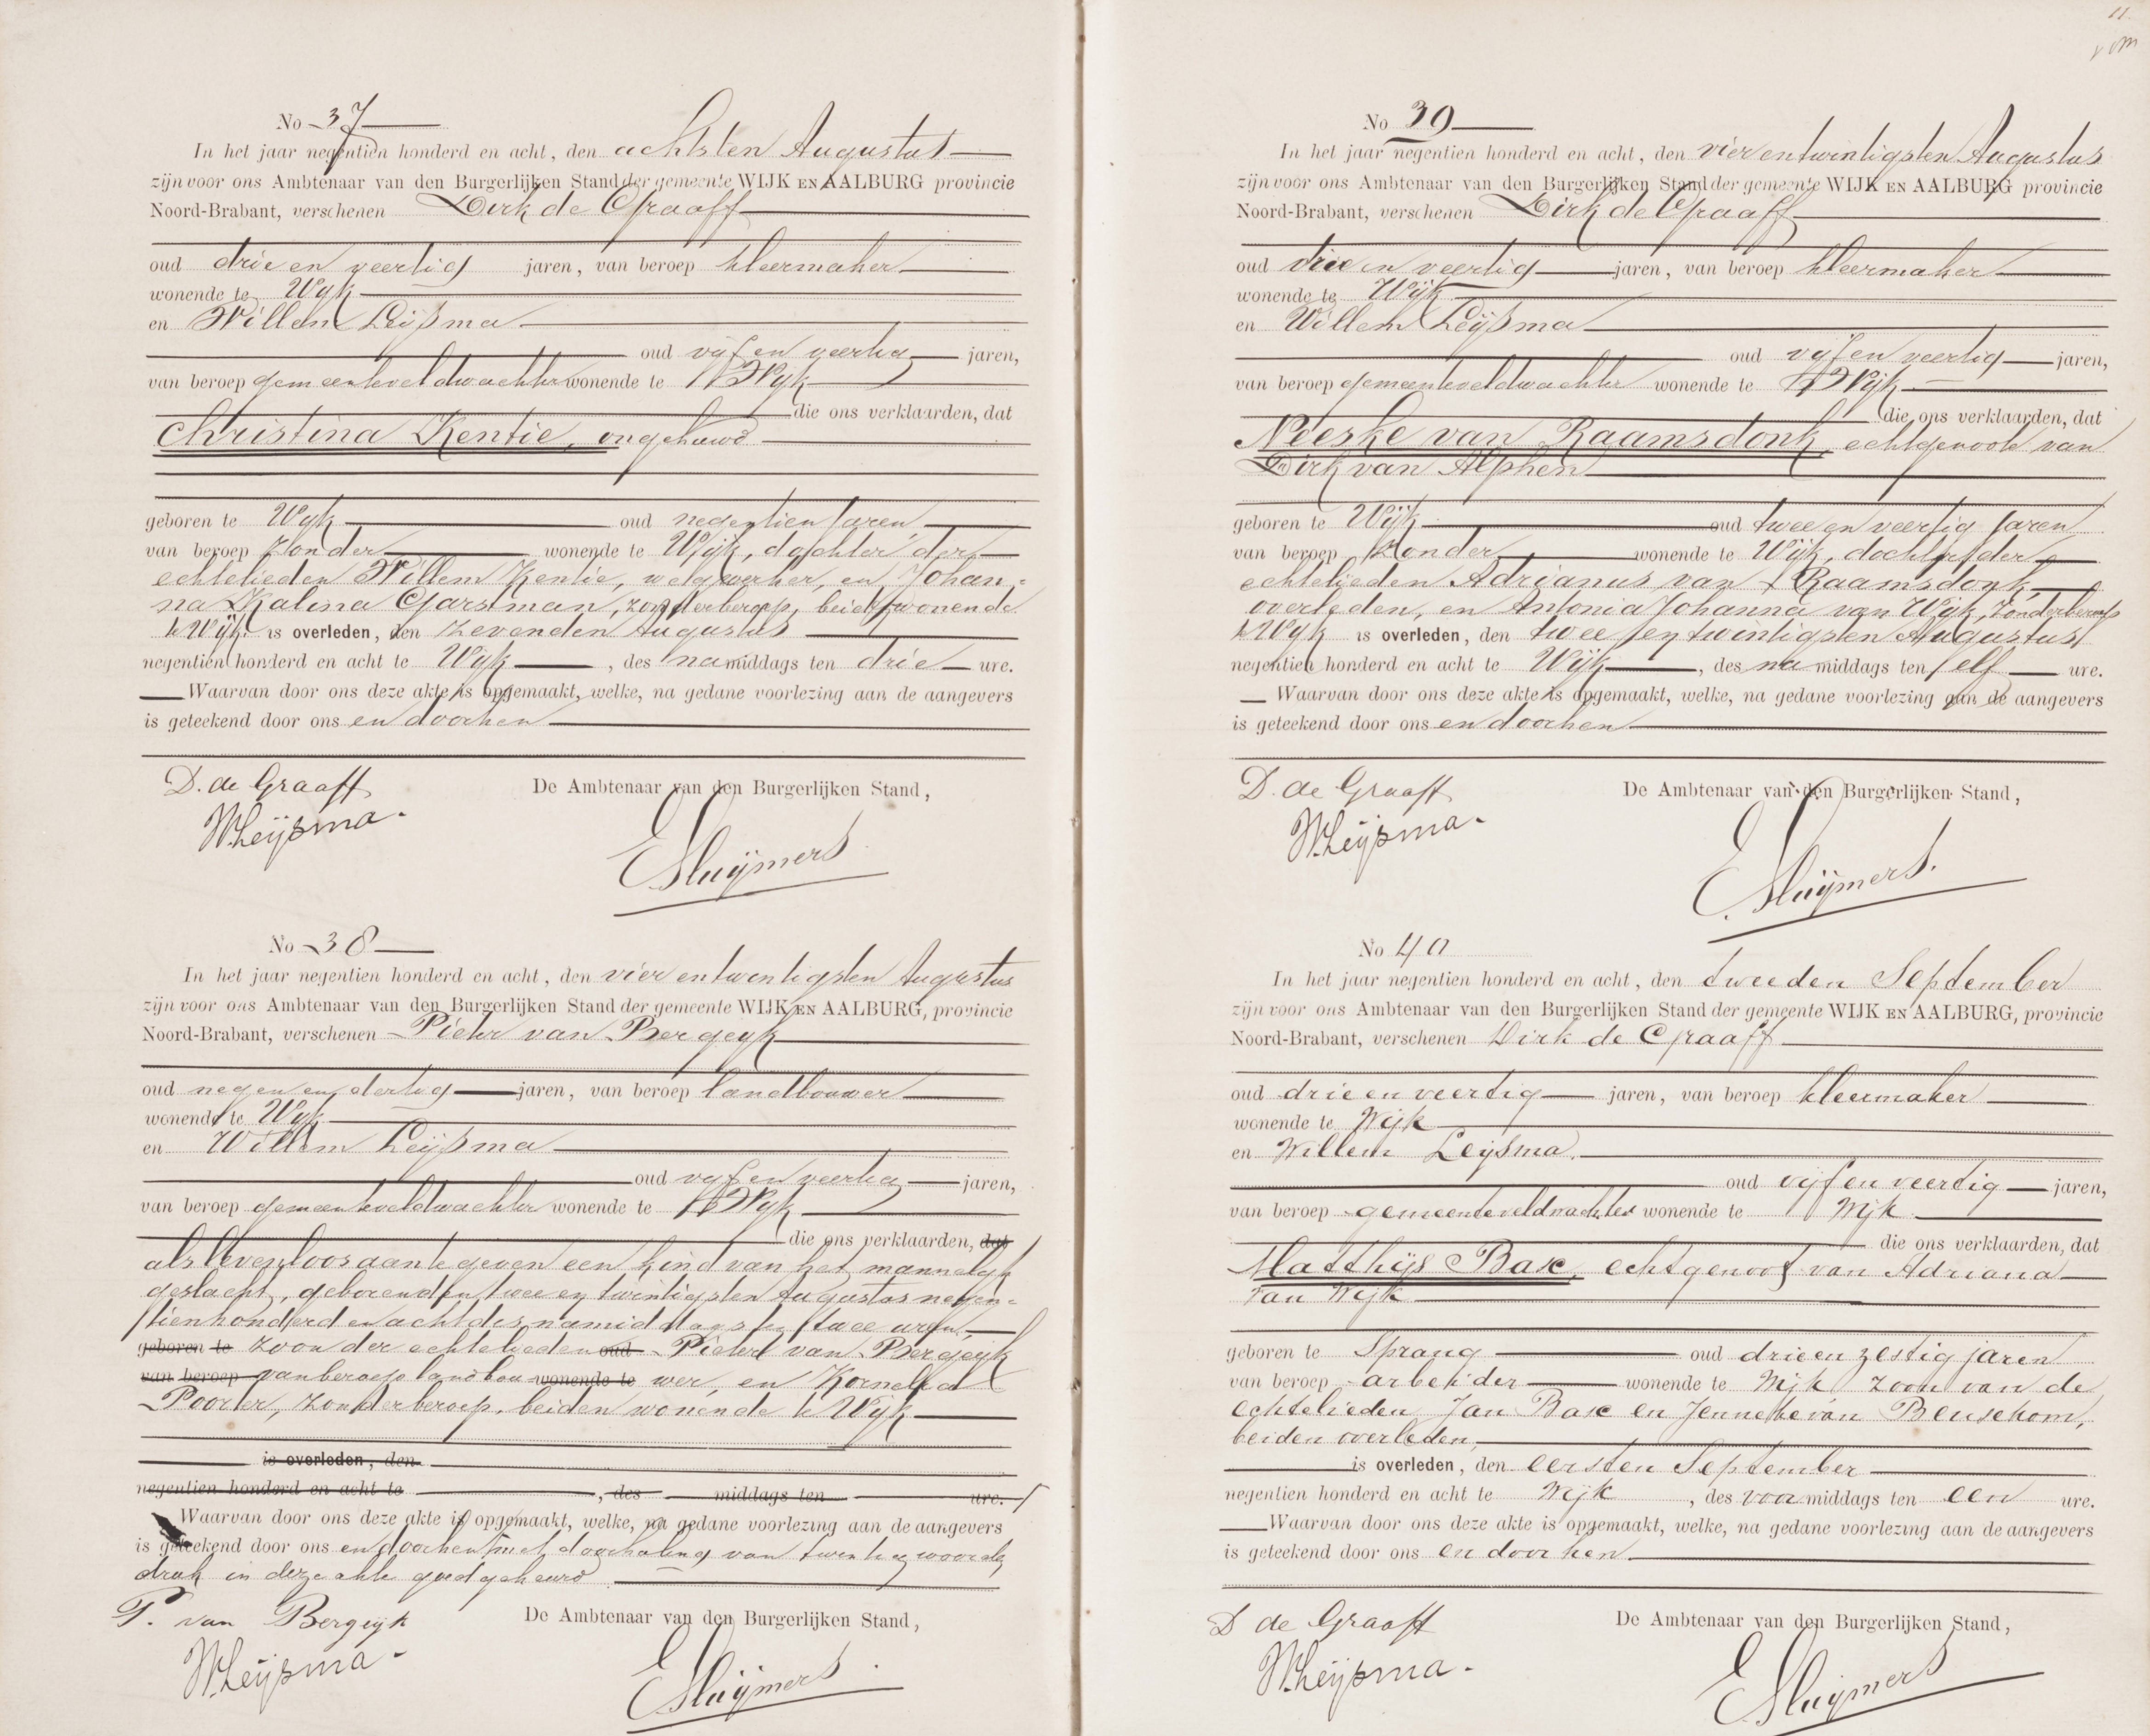 11.
No 37
In het jaar negentien honderd en acht, den achtsten Augustus
zijn voor ons Ambtenaar van den Burgerlijken Stand der gemeente WIJK EN AALBURG provincie
Noord-Brabant, verschenen Dirk de Graaff
oud drie en veertig jaren, van beroep kleermaker
wonende te Wijk
en Willem Leijßma
oud vijf en veertig jaren,
van beroep gemeenteveldwachter wonende te Wijk
die ons verklaarden, dat
Christina Kentie, ongehuwd
geboren te Wijk oud negentien jaren
van beroep zonder wonende te Wijk, dochter der
echtelieden Willem Kentie, wegwerker, en Johan-
na Kalina Garstman, zonder beroep, beide wonende
te Wijk is overleden, den zevenden Augustus
negentien honderd en acht te Wijk, des namiddags ten drie ure.
Waarvan door ons deze akte is opgemaakt, welke, na gedane voorlezing aan de aangevers
is geteekend door ons en door hen
D. de Graaff
De Ambtenaar van den Burgerlijken Stand,
W. Leijßma.
Sluijmers
No 38
In het jaar negentien honderd en acht, den vier en twentigsten Augustus
zijn voor ons Ambtenaar van den Burgerlijken Stand der gemeente WIJK EN AALBURG, provincie
Noord-Brabant, verschenen Pieter van Bergeyk
oud negen en dertig jaren, van beroep landbouwer
wonende te Wijk
en Willem Leijßma
oud vijf en veertig jaren,
van beroep gemeenteveldwachter wonende te Wijk
die ons verklaarden, dat
als levenloos aan te geven een kind van het mannelijk
geslacht, geboren den twee en twintigsten Augustus negen-
tienhonderd en acht des namiddags ten twee uren,
geboren te zoon der echtelieden oud Pieter van Bergeyk
van beroep van beroep landbou wonende te wer, en Kornelia
Poorter, zonder beroep, beiden wonende te Wijk
is overleden, den
negentien honderd en acht te , des middags ten ure.
Waarvan door ons deze akte is opgemaakt, welke, na gedane voorlezing aan de aangevers
is geteekend door ons en door hen met doorhaling van twintig woorden
druk in deze akte goedgekeurd
P. van Bergeyk
De Ambtenaar van den Burgerlijken Stand,
W. Leijßma.
Sluijmers
No 39
In het jaar negentien honderd en acht, den vier en twintigsten Augustus
zijn voor ons Ambtenaar van den Burgerlijken Stand der gemeente WIJK EN AALBURG provincie
Noord-Brabant, verschenen Dirk de Graaff
oud drie en veertig jaren, van beroep kleermaker
wonende te Wijk
en Willem Leijßma
oud vijf en veertig jaren,
van beroep gemeenteveldwachter wonende te Wijk
die ons verklaarden, dat
Neeske van Raamsdonk, echtgenoote van
Dirk van Alphen
geboren te Wijk oud twee en veertig jaren
van beroep zonder wonende te Wijk, dochter der
echtelieden Adrianus van Raamsdonk
overleden, en Antonia Johanna van Wijk, zonder beroep
te Wijk is overleden, den twee en twintigsten Augustus
negentien honderd en acht te Wijk, des na middags ten elf ure.
Waarvan door ons deze akte is opgemaakt, welke, na gedane voorlezing aan de aangevers
is geteekend door ons en door hen
D. de Graaff
De Ambtenaar van den Burgerlijken Stand,
W. Leijßma.
Sluijmers.
No 40
In het jaar negentien honderd en acht, den tweeden September
zijn voor ons Ambtenaar van den Burgerlijken Stand der gemeente WIJK EN AALBURG, provincie
Noord-Brabant, verschenen Dirk de Graaff
oud drie en veertig jaren, van beroep kleermaker
wonende te Wijk
en Willem Leijsma.
oud vijf en veertig jaren,
van beroep gemeenteveldwachter wonende te Wijk
die ons verklaarden, dat
Matthijs Bax, echtgenoot van Adriana
van Wijk
geboren te Sprang oud drie en zestig jaren
van beroep arbeider wonende te Wijk zoon van de
echtelieden Jan Bax en Jenneke van Beusekom,
beiden overleden,
is overleden, den eersten September
negentien honderd en acht te Wijk, des voormiddags ten een ure.
Waarvan door ons deze akte is opgemaakt, welke, na gedane voorlezing aan de aangevers
is geteekend door ons en door hen.
D de Graaff
De Ambtenaar van den Burgerlijken Stand,
W. Leijßma.
Sluijmers